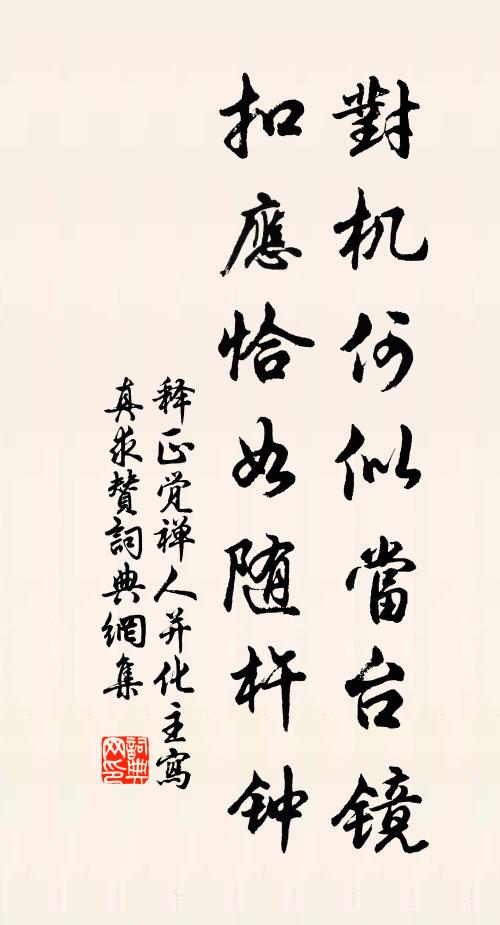 對机何似當台镜
扣應恰如随杵钟
释正觉禅人并化主寫
真求赞詞典網集
詞典网印